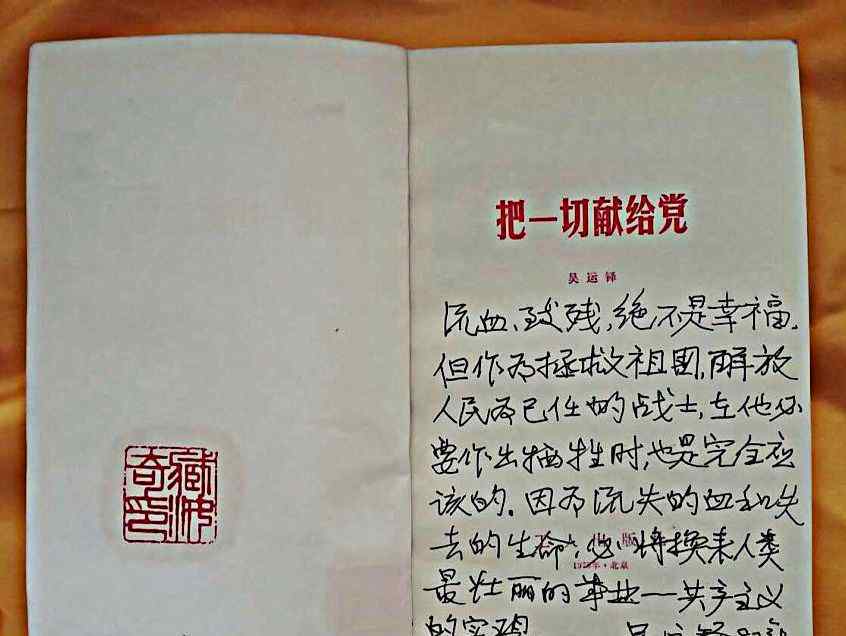 把一切献给党
吴运铎
流血、致残,绝不是幸福.
但作为拯救祖国,解放
人民为己任的战士,在他必
要作出牺牲时,也是完全应
该的.因为流失的血和失
去的生命,必将换来人类
出版
·北京
最壮丽的事业——共产主义
的实现